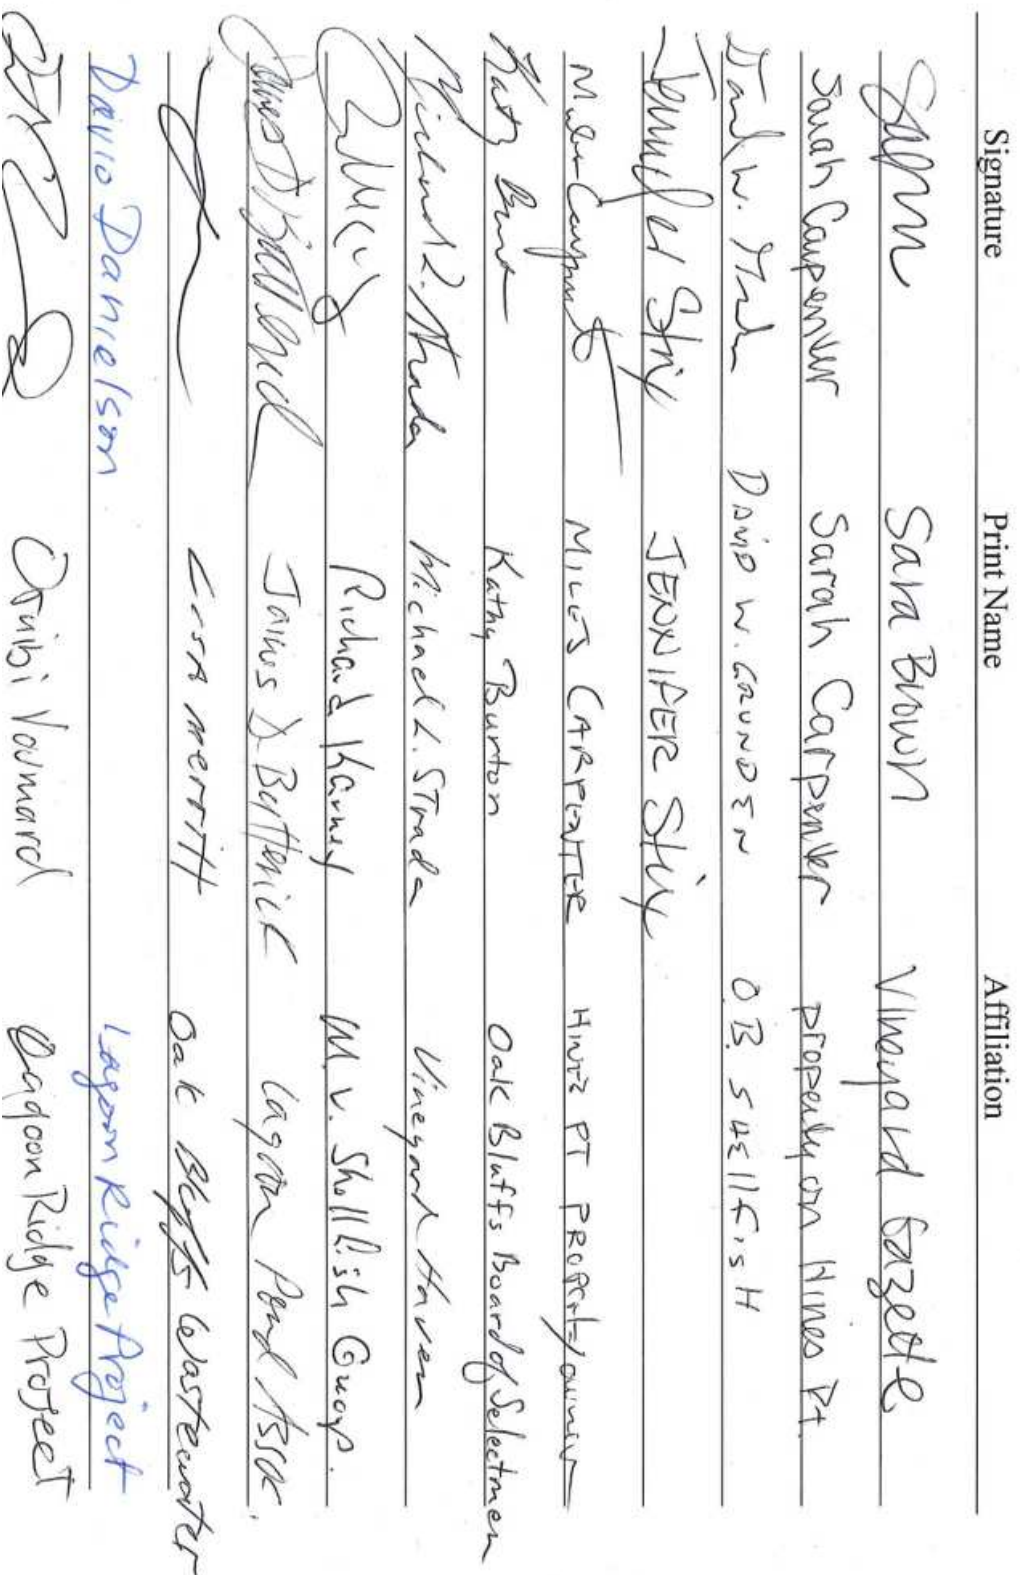 Signature Print Name Affiliation
Sara Brown Vineyard Gazette
Sarah Carpenter Sarah Carpenter property on Hines Pt.
David W. DAVID W. GRUNDEN O.B. SHEllFisH
Jennifer Stix JENNIFER Stix
MILES CARPENTER HINES PT PROPERTY OWNER
Kathy Burton Kathy Burton Oak Bluffs Board of Selectmen
Michael L. Strada Michael L. Strada Vineyard Haven
Richard Karney M.V. Shellfish Group.
James D Butterick Lagoon Pond Assoc.
Lisa merritt Oak Bluffs Wastewater
David Danielson Lagoon Ridge Project
Voumard Lagoon Ridge Project